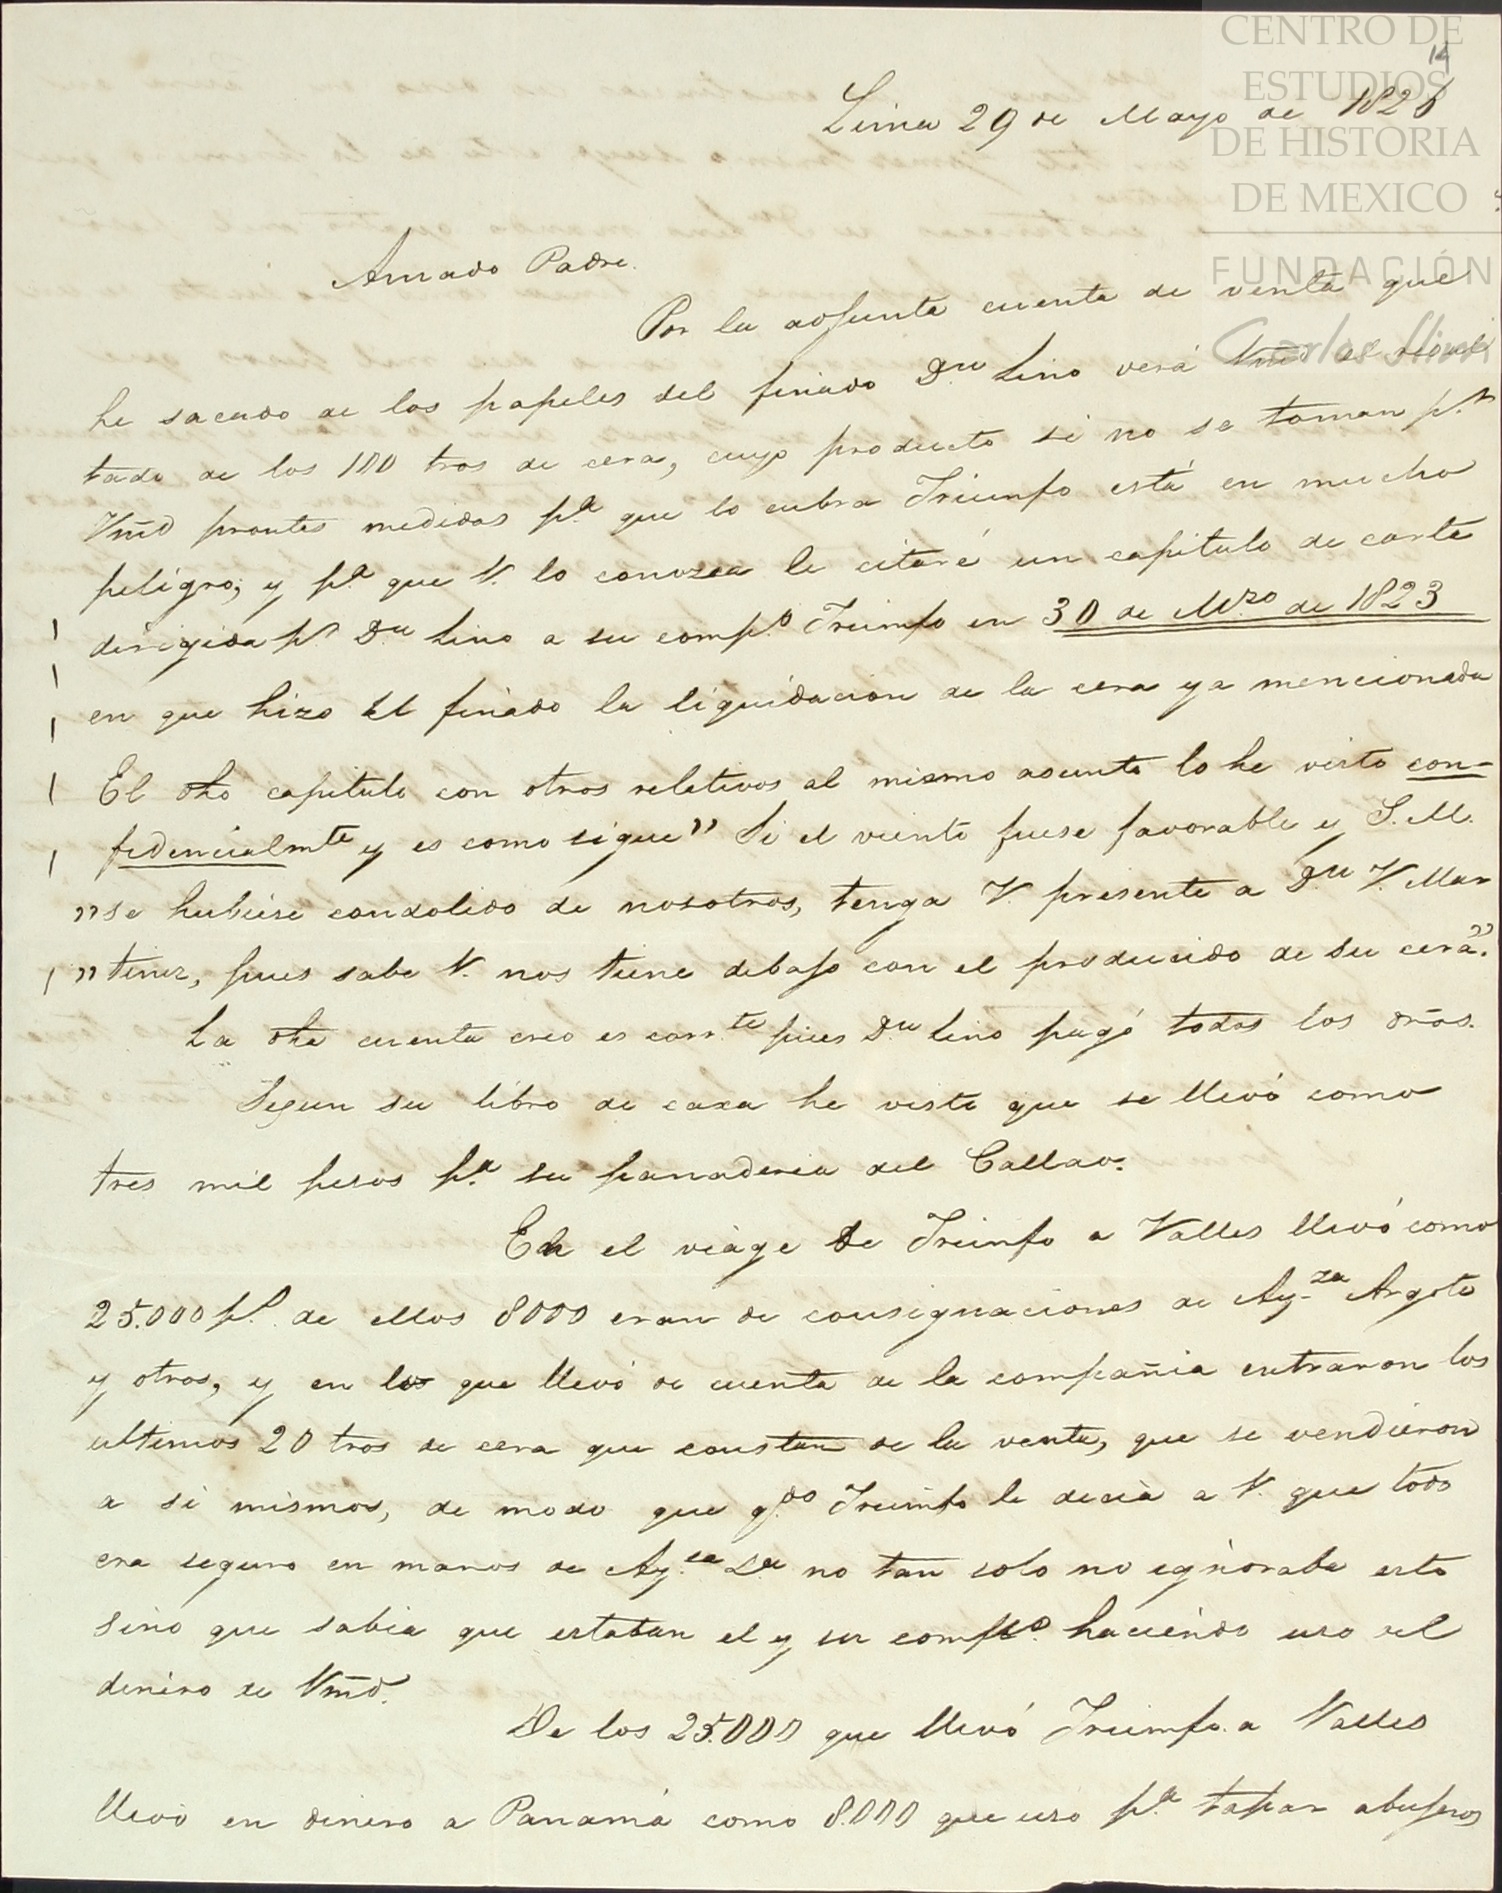 CENTRO DE
ESTUDIOS
DE HISTORIA
DE MEXICO
FUNDACIÓN
Carlos Slim
14
Lima 29 de Mayo de 1826
Amado Padre.
Por la adjunta cuenta de venta que
he sacado de los papeles del finado Dn Lino verá Vmd el resul
tado de los 100 tros de cera, cuyo producto si no se toman pr.
Vmd prontas medidas pa. que lo cubra Triunfo está en mucho
peligro; y pa. que V. lo conozca le citaré un capitulo de carta
dirigida pr. Dn Lino a su compo. Triunfo en 30 de Mzo de 1823
en que hizo el finado la liquidacion de la cera ya mencionada
El dho capitulo con otros relativos al mismo asunto lo he visto con-
fidencialmte y es como sigue" Si el viento fuese favorable y S.M.
"se hubiese condolido de nosotros, tenga V. presente a Dn V. Mar
"tinez, pues sabe V. nos tiene debajo con el producido de su cera".
La dha cuenta creo es corrte pues Dn Lino pagó todos los dros.
Segun su libro de caxa he visto que se llevó como
tres mil pesos pa. su panaderia del Callao.
En el viage de Triunfo a Valles llevó como
25.000 ps. de ellos 8000 eran de consignaciones de Ay-za Argote
y otros, y en los que llevó de cuenta de la compañia entraron los
ultimos 20 tros de cera que constan de la venta, que se vendieron
a si mismos, de modo que qdo Triunfo le decia a V. que todo
era seguro en manos de Ay.za no tan solo no ignoraba esto
sino que sabia que estaban el y su compo. haciendo uso del
dinero de Vmd.
De los 25.000 que llevó Triunfo a Valles
llevó en dinero a Panamá como 8.000 que usó pa. tapar abujeros